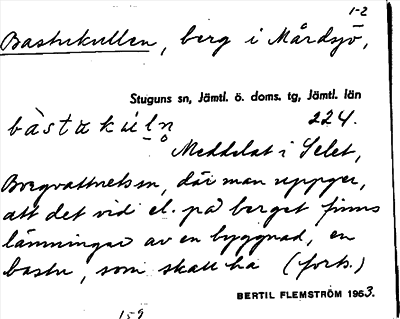 1-2
Bastukullen, berg i Mårdsjö,
Stuguns sn, Jämtl. ö. doms. tg, Jämtl. län
bàstakúln 224.
Meddelat i Selet,
Borgvattnets sn, där man uppger,
att det vid el. på berget finns
lämningar av en byggnad, en
bastu, som skall ha (forts.)
BERTIL FLEMSTRÖM 1963.
159